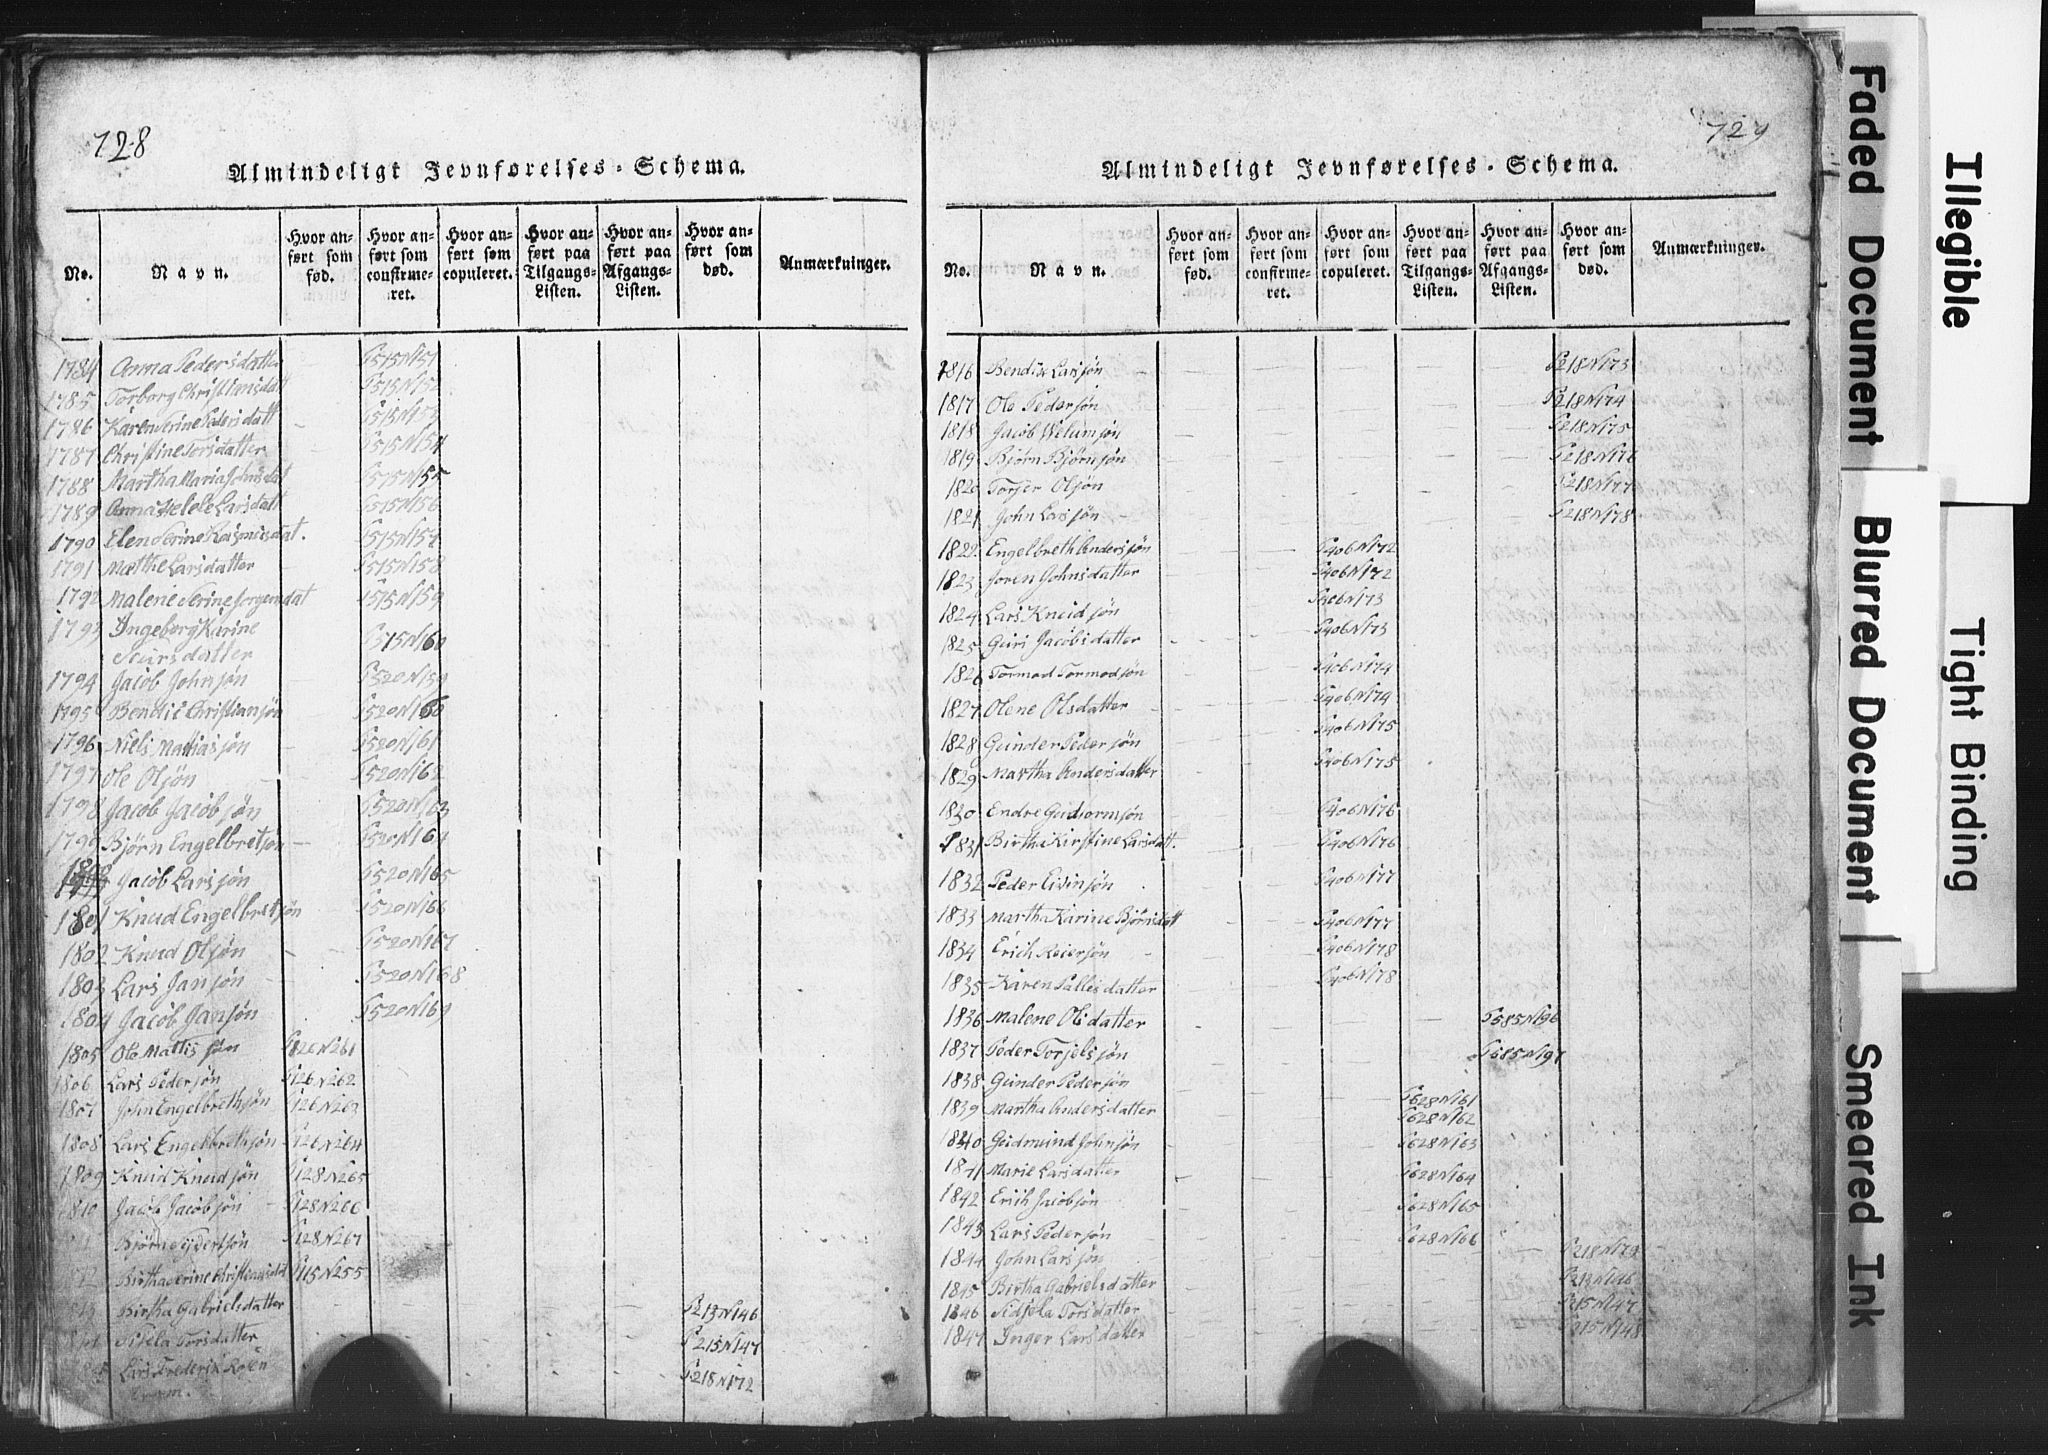 728
Almindeligt Jevnførelses-Schema.
No.
Navn.
Hvor anført som fød.
Hvor anført som confirmeret.
Hvor anført som copuleret.
Hvor anført paa Tilgangs-Listen.
Hvor anført paa Afgangs-Listen.
Hvor anført som død.
Anmærkninger.
1784 Anna Pedersdatter P515N151
1785 Torborg Christiansdatt P515N152
1786 Karen Serine Pedersdatt P515N153
1787 Christine Torsdatter P515N154
1788 Martha Maria Johnsdat P515N155
1789 Anna Helele Larsdatt P515N156
1790 Elen Serine Rasmusdat. P515N157
1791 Mathe Larsdatter P515N158
1792 Malene Serine Jorgensdat P515N159
1793 Ingeborg Karine
Siursdatter P515N160
1794 Jacob Johnsøn P520N159
1795 Bendic Christiansøn P520N160
1796 Niels Mathiasøn P520N161
1797 Ole Olsøn P520N162
1798 Jacob Jacobsøn P520N163
1799 Bjørn Engelbretsøn P520N164
1800 Jacob Larsøn P520N165
1801 Knud Engelbretsøn P520N166
1802 Knud Olsøn P520N167
1803 Lars Jansøn P520N168
1804 Jacob Jansøn P520N169
1805 Ole Mattissøn P126N261
1806 Lars Pedersøn P126N262
1807 John Engelbrethsøn P126N263
1808 Lars Engelbrethsøn P126N264
1809 Knud Knudsøn P128N265
1810 Jacob Jacobsøn P128N266
Bjørn Syvertsøn P128N267
Birtha Serine Christensdat P115N255
Birtha Gabrielsdatter P213N146
Sidsela Torsdatter P215N147
Lars Frederik P218N172
729
Almindeligt Jevnførelses-Schema.
No.
Navn.
Hvor anført som fød.
Hvor anført som confirmeret.
Hvor anført som copuleret.
Hvor anført paa Tilgangs-Listen.
Hvor anført paa Afgangs-Listen.
Hvor anført som død.
Anmærkninger.
1816 Bendix Larsøn P218N173
1817 Ole Pedersøn P218N174
1818 Jacob Wilumsøn P218N175
1819 Bjørn Bjørnsøn P218N176
1820 Torjer Olsøn P218N177
1821 John Larsøn P218N178
1822 Engelbreth Andersøn P406N172
1823 Joren Johnsdatter P406N172
1824 Lars Knudsøn P406N173
1825 Guri Jacobsdatter P406N173
1826 Tormod Tormodsøn P406N174
1827 Olene Olsdatter P406N174
1828 Gunder Pedersøn P406N175
1829 Martha Andersdatter P406N175
1830 Endre Gudormsøn P406N176
1831 Birtha Kirstine Larsdatt. P406N176
1832 Peder Eivinsøn P406N177
1833 Martha Karine Bjørnsdatt P406N177
1834 Erich Reiersøn P406N178
1835 Karen Pallesdatter P406N178
1836 Malene Olsdatter P585N196
1837 Peder Torjelsøn P585N197
1838 Gunder Pedersøn P628N161
1839 Martha Andersdatter P628N162
1840 Gudmund Johnsøn P628N163
1841 Marie Larsdatter P628N164
1842 Erich Jacobsøn P628N165
1843 Lars Pedersøn P628N166
1844 John Larsøn P218N179
1845 Birtha Gabrielsdatter P213N146
1846 Sidsela Torsdatter P215N147
1847 Inger Larsdatter P215N148
Faded Document
Illegible
Blurred Document
Tight Binding
Smeared Ink